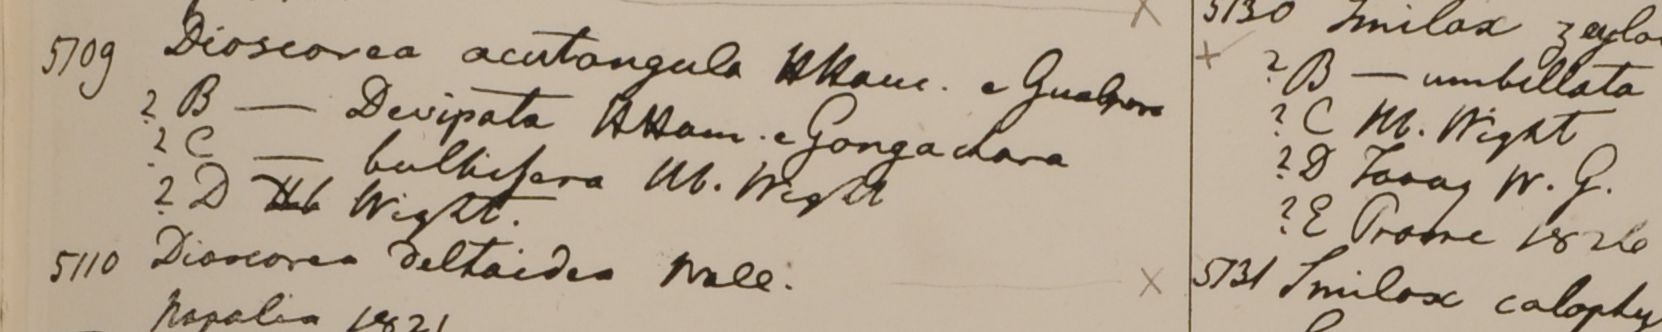 5109 Dioscorea acutangula HHam. e Gualpara
? B — Devipata HHam. e Gongachora
? C — bulbifera Hb. Wight
? D Hb Wight.
5110 Dioscorea deltoidea Wall.
Napalia 1821
5130 Smilax zeyla
? B — umbellata
? C Hb. Wight
? D Tavoy W. G.
? E Prome 1826
5131 Smilax calophy